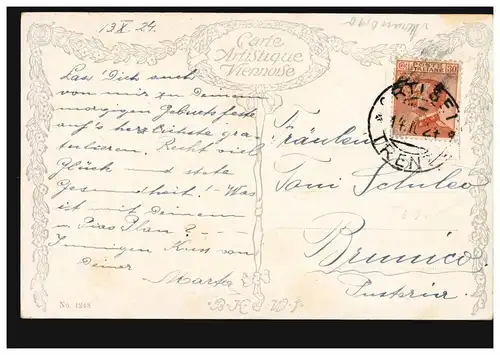 13 X 24.
Carte
Artistique
Viennoise
Lass' Dich auch
von mir zu deinem
morgigen Geburtsfeste
auf's herzlichste gra-
tulieren. Recht viel
Glück und stete
Gesundheit! – Was
ist mit deinem
u. Pias Plan? –
Innigen Kuss von
deiner
Marta
No. 1248
B.K.W.I
POSTE
ITALIANE
ORTISEI
14.X.24
TREN
Fräulein
Toni Schuler
Brunico
Pusteria